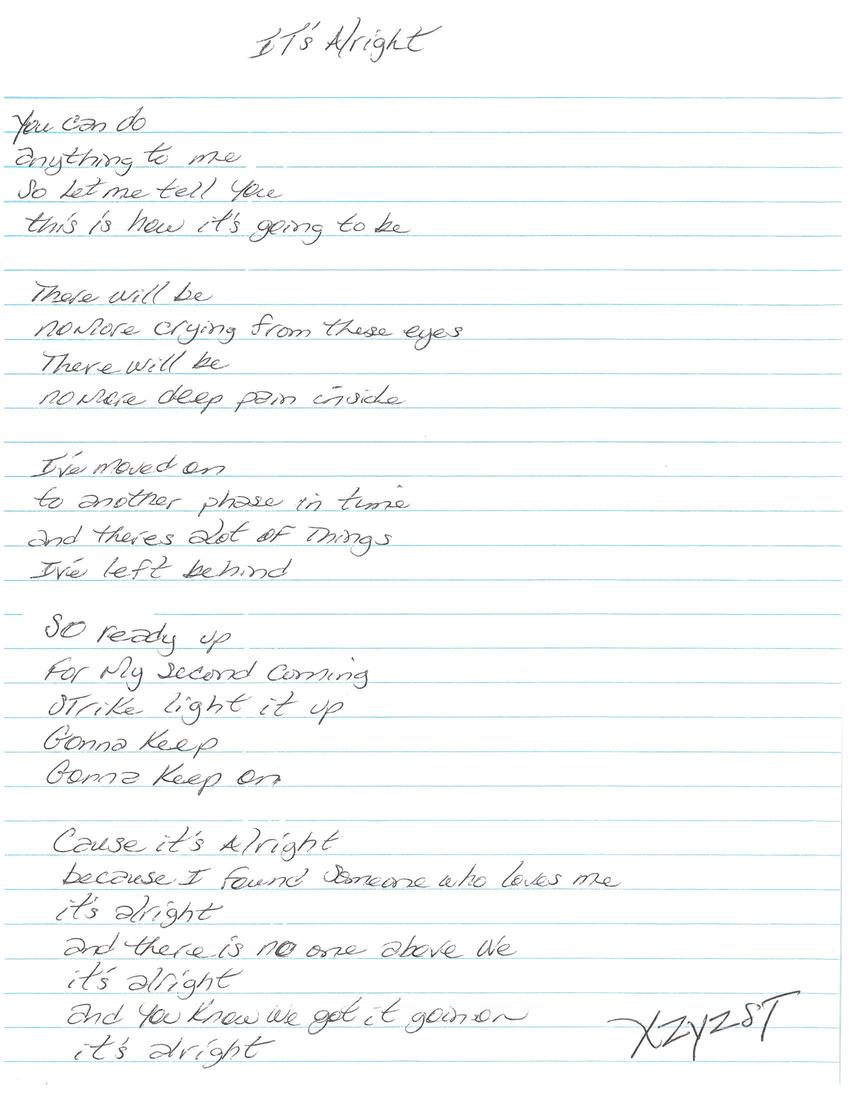 It's Alright
You can do
anything to me
So let me tell you
this is how it's going to be
There will be
no more crying from these eyes
There will be
no more deep pain inside
I've moved on
to another phase in time
and theres alot of Things
I've left behind
So ready up
For My Second Coming
STrike light it up
Gonna Keep
Gonna Keep on
Cause it's Alright
because I found Someone who loves me
it's alright
and there is no one above We
it's alright
and You Know We got it goin on
it's alright
XZYZST